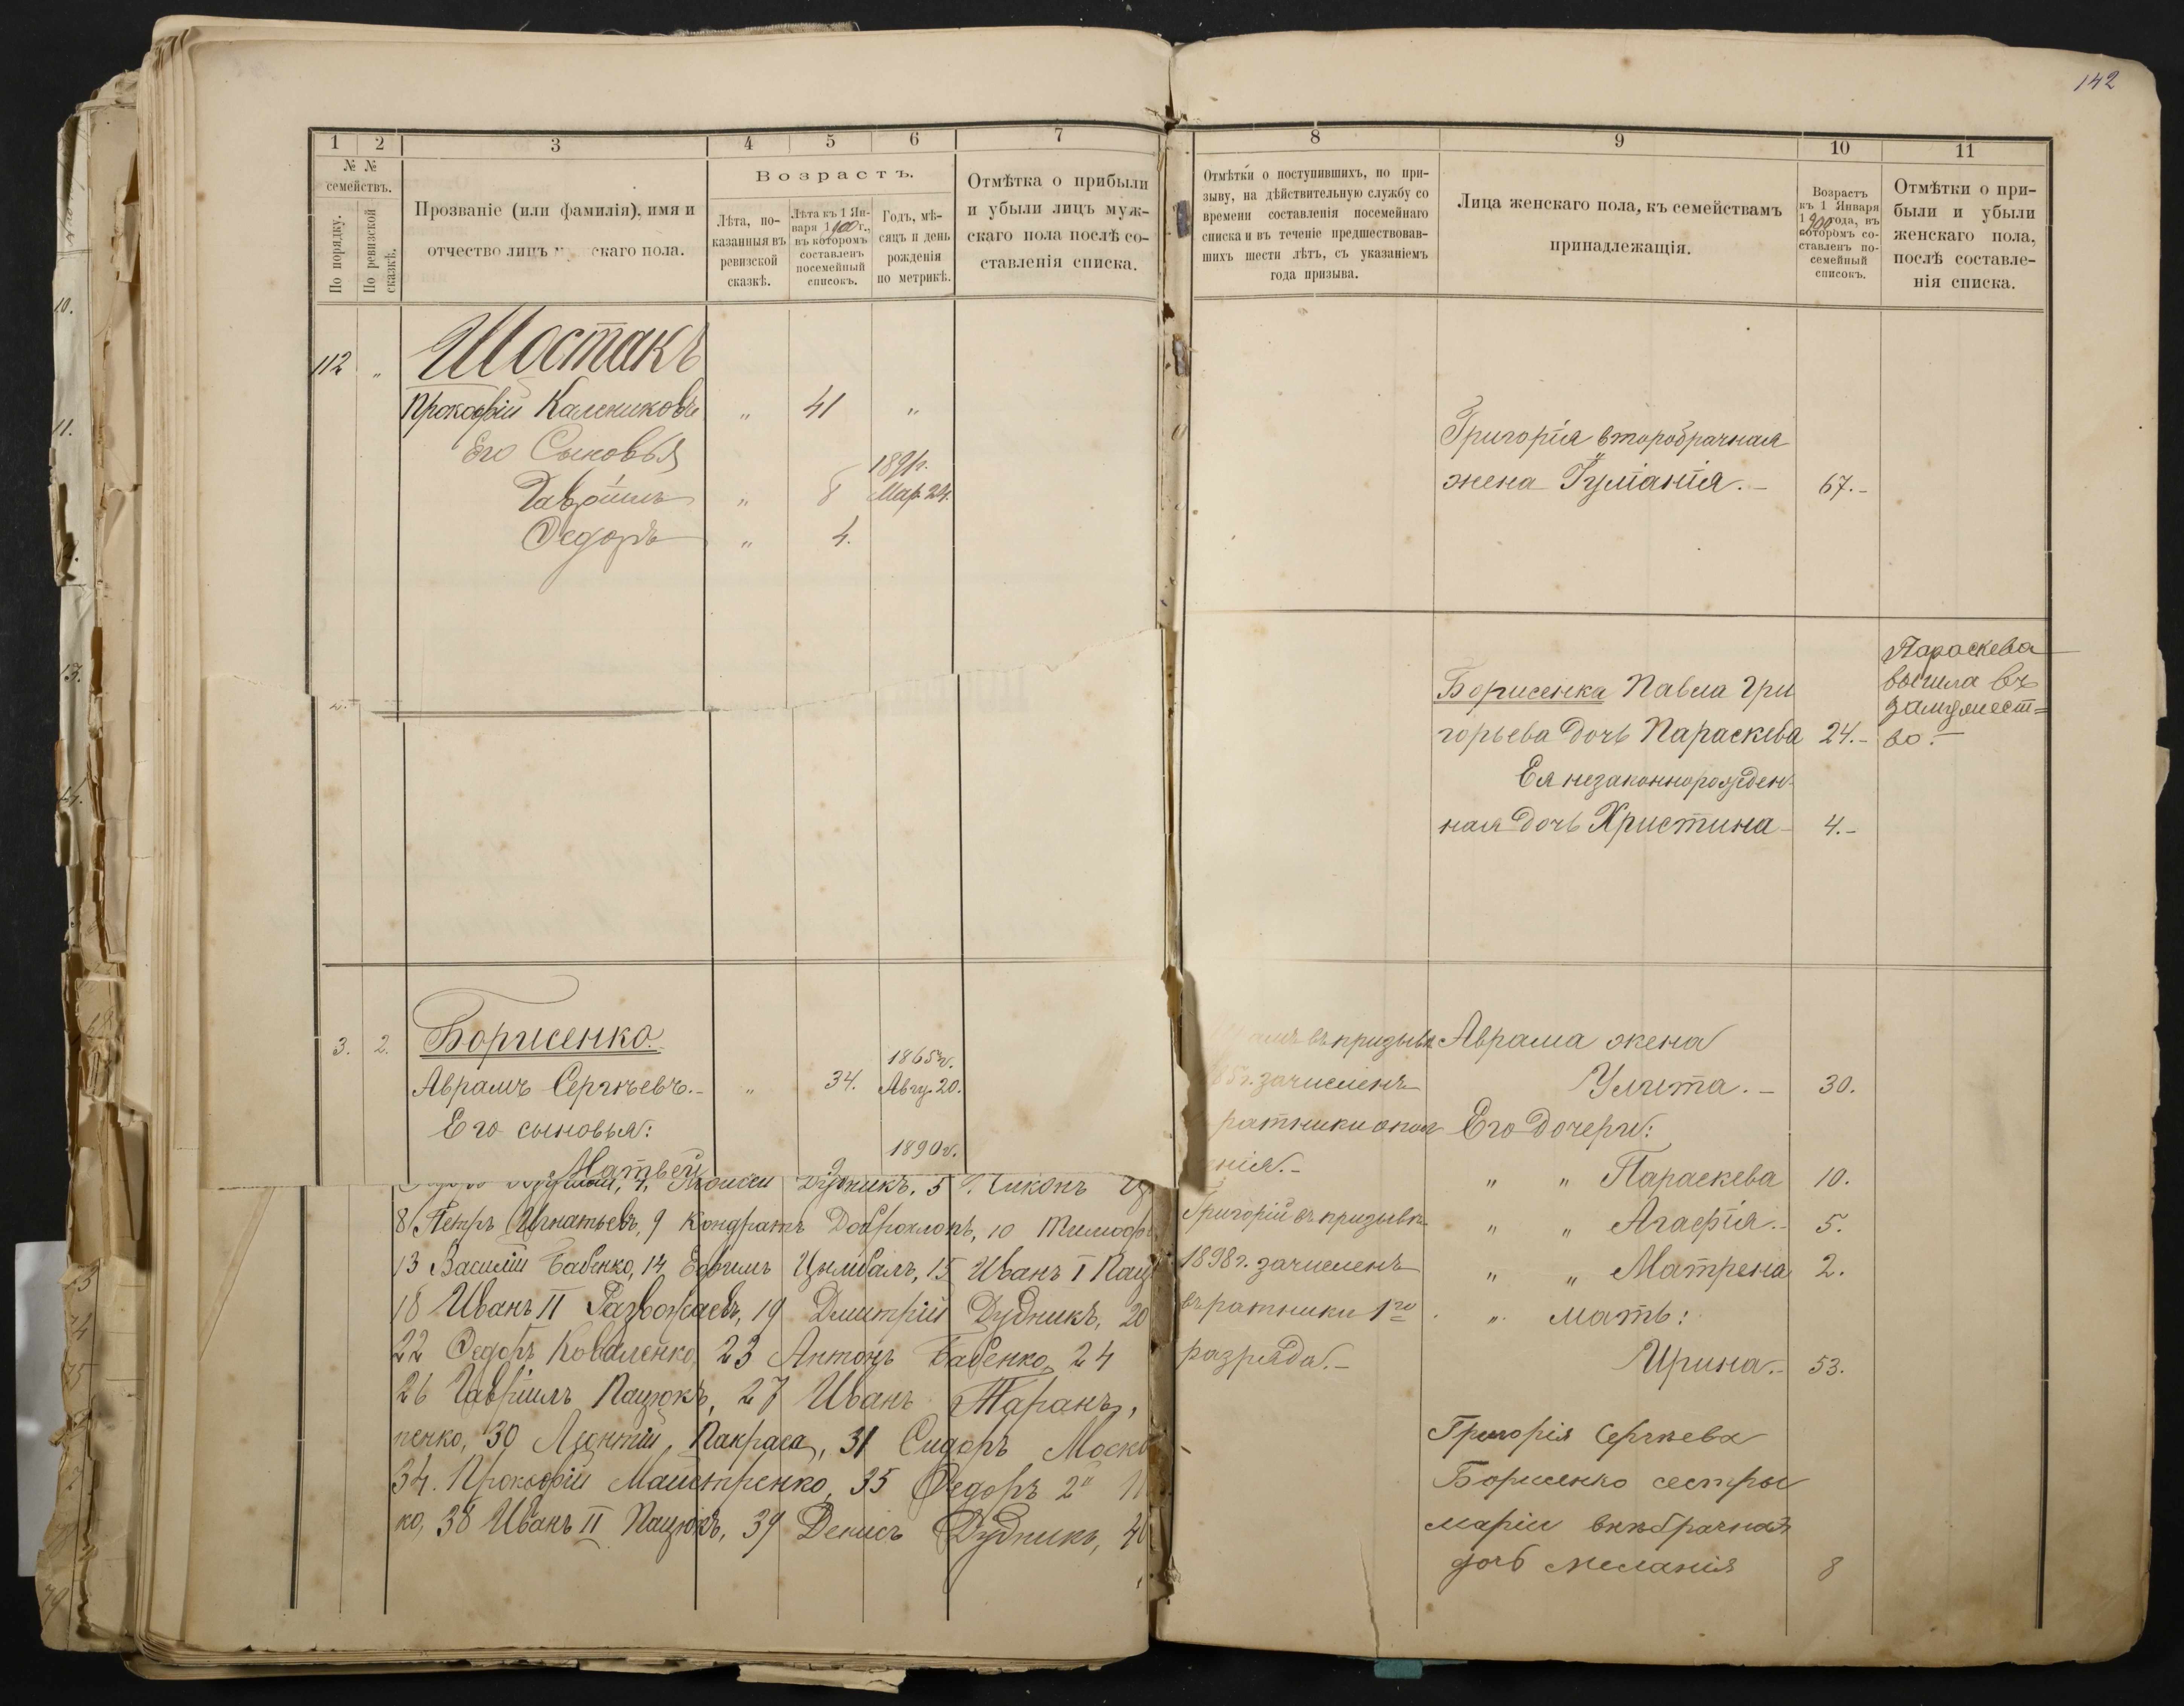 142
1 2 3 4 5 6 7
№ №
семействъ.
По порядку.
По ревизской сказкѣ.
Прозваніе (или фамилія), имя и
отчество лицъ м скаго пола.
Возрастъ.
Лѣта, по-
казанныя въ
ревизской
сказкѣ.
Лѣта къ 1 Ян-
варя 1900 г.,
въ которомъ
составленъ
посемейный
списокъ.
Годъ, мѣ-
сяцъ и день
рожденія
по метрикѣ.
Отмѣтка о прибыли
и убыли лицъ муж-
скаго пола послѣ со-
ставленія списка.
112 „ Шостакъ
Прокофій Калениковъ „ 41 „
Его Сыновья
1891г.
Гавріилъ „ 8 Мар. 24.
Федоръ „ 4.
3. 2. Борисенко.
1865г.
Аврамъ Сергѣевъ.- „ 34. Авгу. 20.
Его сыновья:
1890г.
Матвей
Дудникъ, 5
8 Петръ Игнатьевъ, 9 Кондратъ Доброхлопъ, 10 Тимоф
13 Василій Бабенко, 14 Ефимъ Цымбалъ, 15 Иванъ I Пац
18 Иванъ II 19 Дмитрій Дудникъ, 20
22 Федоръ Коваленко, 23 Антонъ Бабенко, 24
26 Гавріилъ Пацюкъ, 27 Иванъ Таранъ,
пенко, 30 Леонтій Пакраса, 31 Сидоръ Моск
34. Прокофій Майстренко, 35 Федоръ 2й
ко, 38 Иванъ II Пацюкъ, 39 Денисъ Дудникъ, 40
8 9 10 11
Отмѣтки о поступившихъ, по при-
зыву, на дѣйствительную службу со
времени составленія посемейнаго
списка и въ теченіе предшествовав-
шихъ шести лѣтъ, съ указаніемъ
года призыва.
Лица женскаго пола, къ семействамъ
принадлежащія.
Возрастъ
къ 1 Января
1900 года, въ
которомъ со-
ставленъ по-
семейный
списокъ.
Отмѣтки о при-
были и убыли
женскаго пола,
послѣ составле-
нія списка.
Григорія второбрачная
жена 67.-
Борисенка Павла Гри
горьева дочь Параскева 24.-
Ея незаконнорожден-
ная дочь Христина 4.-
Параскева
вышла въ
замужест=
во.-
въ призывѣ
5г. зачисленъ
ратники опол
ченія.-
Григорій въ призывѣ
1898г. зачисленъ
въ ратники 1го
разряда.-
Аврама жена
Улита.- 30.
Его дочери:
„ „ Параскева 10.
„ „ Агафія.- 5.
„ „ Матрена 2.
„ мать:
Ирина.- 53.
Григорія Сергѣева
Борисенко сестры
Маріи внѣбрачная
дочь Меланія 8